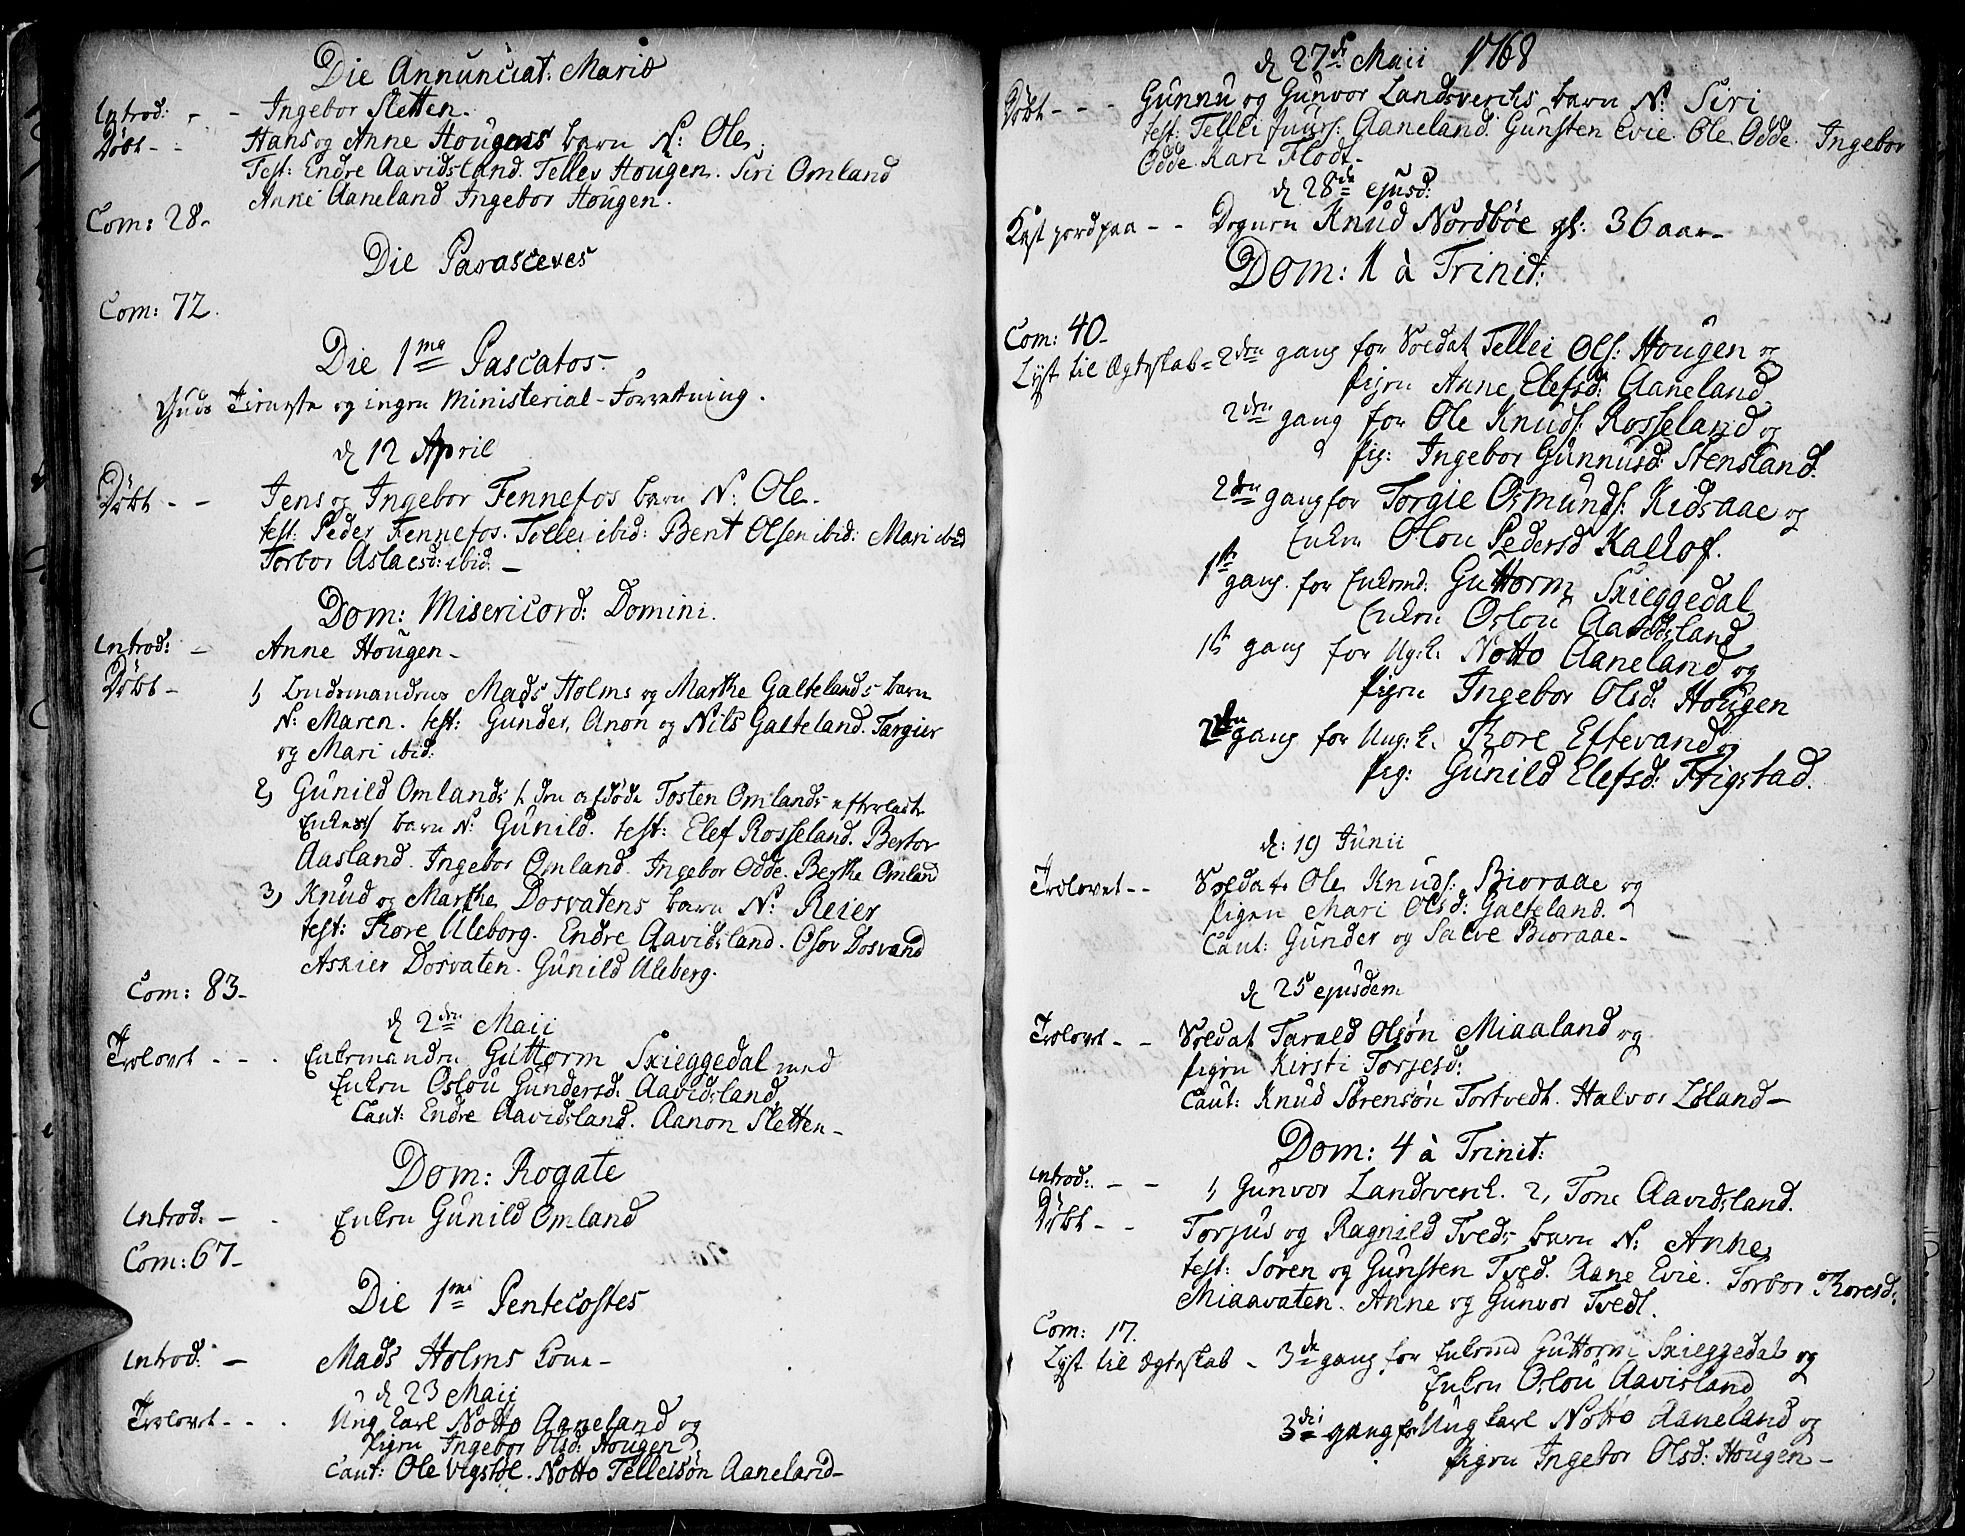 Die Annunciat: Mariæ
Introd: - - Ingebor Sletten.
Døbt - - Hans og Anne Hougens barn N: Ole.
Test: Endre Aavidsland. Tellev Hougen. Siri Omland
Anne Aaneland Ingebor Hougen.
Com: 28.
Die Parasceves
Com: 72.
Die 1ma Pascatos.
Guds Tieneste og ingen Ministerial-Forretning.
d 12 April
Døbt - - Jens og Ingebor Fennefos barn N: Ole.
test: Peder Fennefos. Tellei ibid: Bent Olsen ibid: Mari ibid
Torbor Aslaesd: ibid. -
Dom: Misericord: Domini.
Introd: - Anne Hougen -
Døbt - 1, Lendsmandens Mads Holms og Marthe Galtelands barn
N: Maren. test: Gunder, Anon og Nils Galteland. Targier
og Mari ibid:
2, Gunild Omlands /: den afdøde Tosten Omlands efterladte
Enkes :/ barn N: Gunild. test: Elef Rosseland. Berbor
Aasland. Ingebor Omland. Ingebor Odde. Berthe Omland
3, Knud og Marthe Dosvatens barn N: Reier
test: Thore Uleberg. Endre Aavidsland. Osov Dosvand
Askier Dosvaten. Gunild Uleberg.
Com: 83-
d 2den Maii
Trolovet - - - Enkemanden Guttorm Skieggedal med
Enken Oslou Gundersd: Aavidsland.
Caut: Endre Aavidsland. Aanon Sletten -
Dom: Rogate
Introd: - - Enken Gunild Omland
Com: 67-
Die 1ma Pentecostes
Introd: - Mads Holms Kone -
d 23 Maii
Trolovet - - - Ung karl Notto Aaneland og
pigen Ingebor Olsd: Hougen
Caut: Ole Vigstøl. Notto Telleisøn Aaneland -
d 27de Maii 1768
Døbt - - - Gunnu og Gunvor Landsverks barn N: Siri
test: Tellei Juurs: Aaneland. Gunsten Evie. Ole Odde. Ingebor
Odde. Kari Flodt -
d 28de ejusd:
Kast jord paa - - Drengen Knud Nordbøe gl: 36 aar -
Dom: 1 à Trinit:
Com: 40-
Lyst til Ægteskab - 2den gang for Soldat Tellei Ols: Hougen og
pigen Anne Elefsd: Aaneland
2den gang for Ole Knuds: Rosseland og
pig: Ingebor Gunnusd: Stensland.
2den gang for Torgie Osmunds: Kidsaae og
Enken Olou Pedersd Kalhof.
1ste gang for Enkemd: Guttorm Skieggedal
Enken Oslou Aavidsland
1ste gang for Ug: k. Notto Aaneland og
pigen Ingebor Olsd: Hougen
2den gang for Ung: k. Thore Eftevand og
pig: Gunild Elefsd: Frigstad.
d: 19 Junii
Trolovet - - Soldat Ole Knuds: Bioraae og
pigen Mari Olsd: Galteland.
Caut: Gunder og Salve Bioraae -
d 25 ejusdem
Trolovet - - Soldat Tarald Olsøn Miaaland og
pigen Kirsti Torjesd:
Caut: Knud Sørensøn Tortvedt. Halvor Løland -
Dom: 4 à Trinit:
Introd: - - 1, Gunvor Landsverk. 2, Tone Aavidsland.
Døbt - - Torjus og Ragnild Tveds barn N: Anne
test: Søren og Gunsten Tved. Aane Evie. Torbor Thoresd:
Miaavaten. Anne og Gunvor Tvedt.
Com: 17.
Lyst til Ægteskab - 3de gang for Enkemd Guttorm Skieggedal og
Enken Oslou Aavisland
3die gang for Ung karl Notto Aaneland og
pigen Ingebor Olsd: Hougen -